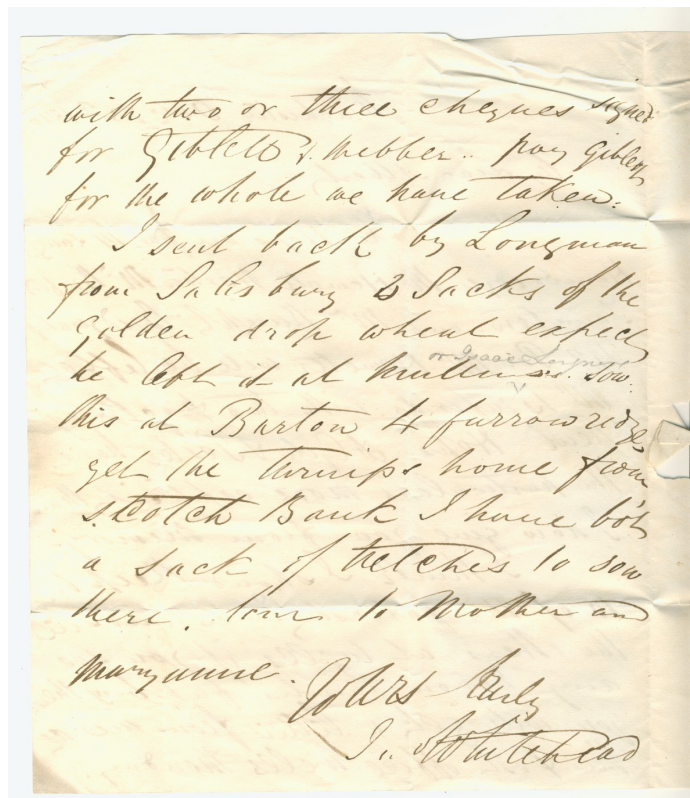 with two or three cheques signed
for Giblett & Webber.. pay Giblett
for the whole we have taken.
I sent back by Longman
from Salisbury 3 Sacks of the
golden drop wheat expect
or Isaac Longmans
he left it at Mullins's. sow
this at Barton 4 furrow ridge
get the turnips home from
Scotch Bank I have bot
a sack of Vetches to sow
there. love to Mother and
Maryanne.
Yours truly
J. Whitehead